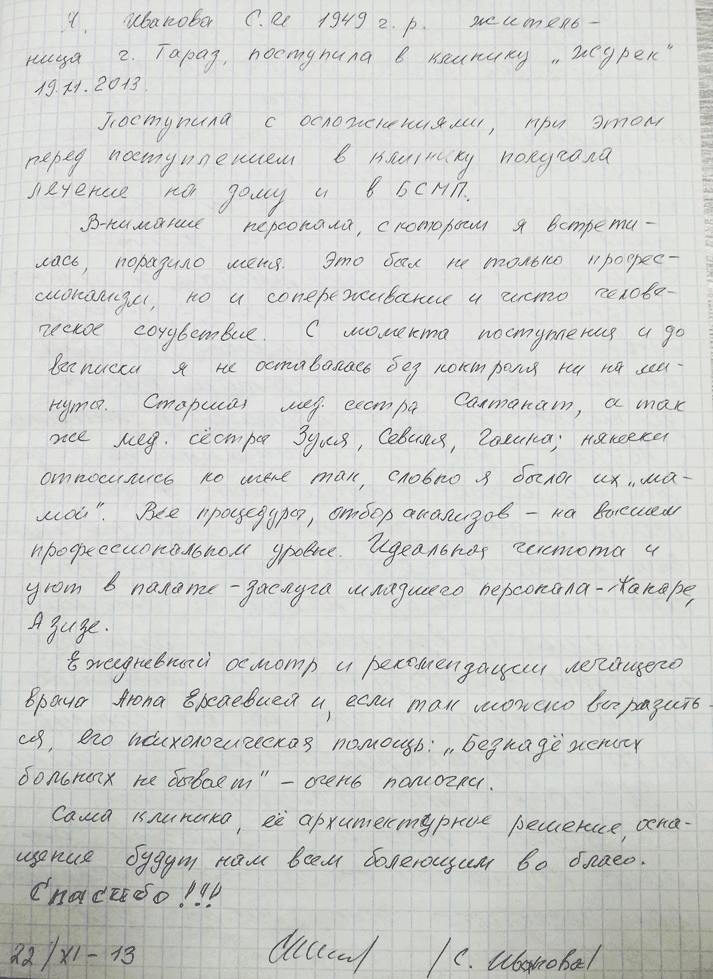 Я, Иванова С.И 1949 г. р. житель-
ница г. Тараз, поступила в клинику „Жүрек"
19.XI.2013.
Поступила с осложнениями, при этом
перед поступлением в клинику получала
лечение на дому и в БСМП.
Внимание персонала, с которым я встрети-
лась, поразило меня. Это был не только профес-
сионализм, но и сопереживание и чисто челове-
ческое сочувствие. С момента поступления и до
выписки я не оставалась без контроля ни на ми-
нуты. Старшая мед. сестра Салтанат, а так
же мед. сёстры Зуля, Севиля, Галина; нянечки
относились ко мне так, словно я была их „ма-
мой". Все процедуры, отбор анализов – на высшем
профессиональном уровне. Идеальная чистота и
уют в палате – заслуга младшего персонала – Жанаре,
Азизе.
Ежедневный осмотр и рекомендации лечащего
врача и, если так можно выразить-
ся, его психологическая помощь: „Безнадёжных
больных не бывает" – очень помогли.
Сама клиника, её архитектурное решение, осна-
щение будут нам всем болеющим во благо.
Спасибо!!!
22/XI – 13 /С. Иванова/